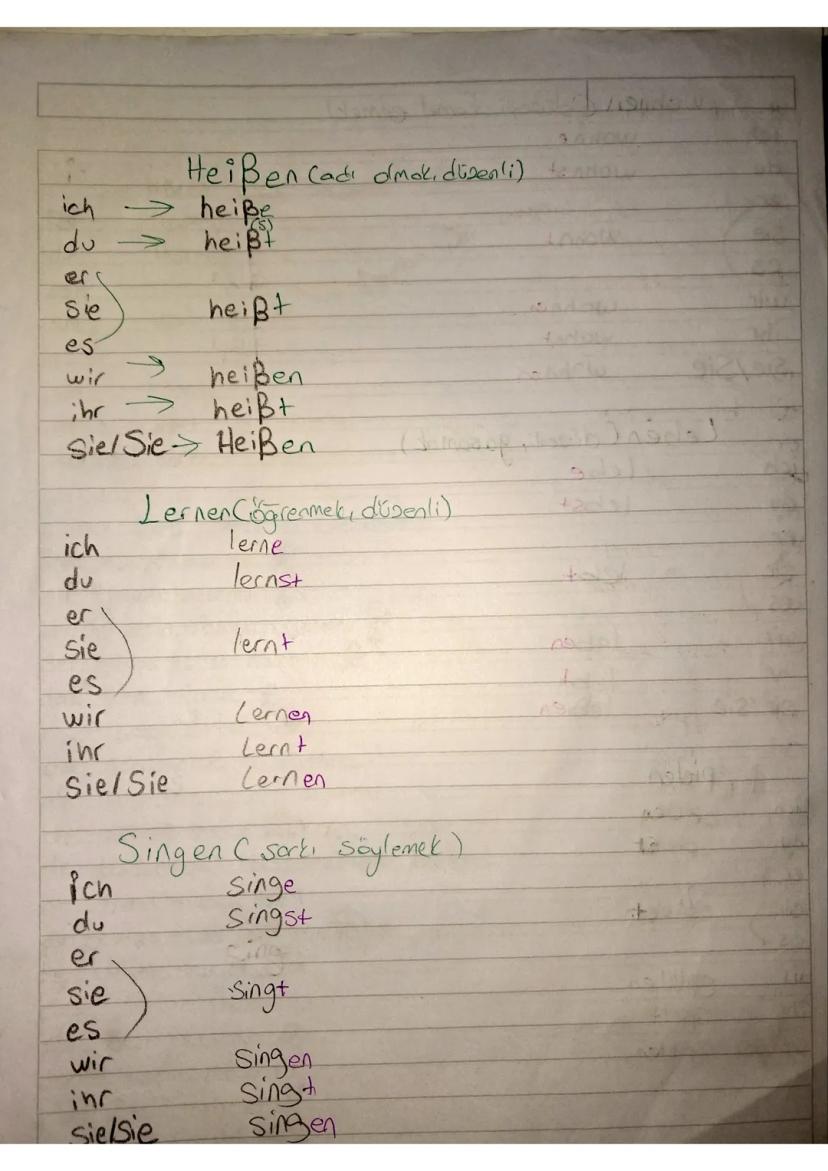 Heißen (adı olmak, düzenli)
ich → heiße
du → heiß(s)t
er
sie heißt
es
wir → heißen
ihr → heißt
Sie/Sie → Heißen
Lernen (öğrenmek, düzenli)
ich lerne
du lernst
er
sie lernt
es
wir Lernen
ihr Lernt
Sie/Sie Lernen
Singen (şarkı söylemek)
ich singe
du singst
er
sie singt
es
wir singen
ihr singt
sie/sie singen